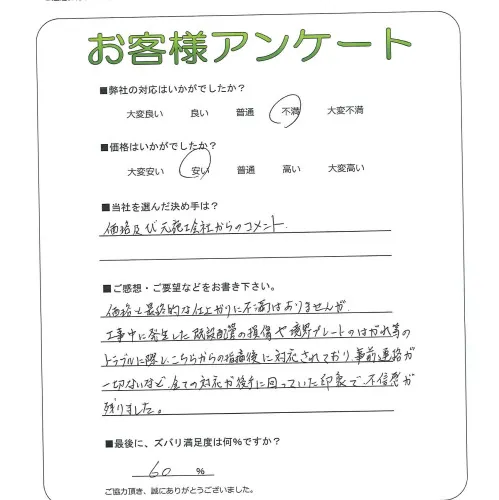 お客様アンケート
■弊社の対応はいかがでしたか？
大変良い 良い 普通 不満 大変不満
■価格はいかがでしたか？
大変安い 安い 普通 高い 大変高い
■当社を選んだ決め手は？
価格及び元施工会社からのコメント.
■ご感想・ご要望などをお書き下さい。
価格と最終的な仕上がりに不満はありませんが
工事中に発生した既設配管の損傷や境界プレートのはがれ等の
トラブルに際し、こちらからの指摘後に対応されており事前連絡が
一切ないなど、全ての対応が後手に回っていた印象で、不信感が
残りました。
■最後に、ズバリ満足度は何%ですか？
60 %
ご協力頂き、誠にありがとうございました。